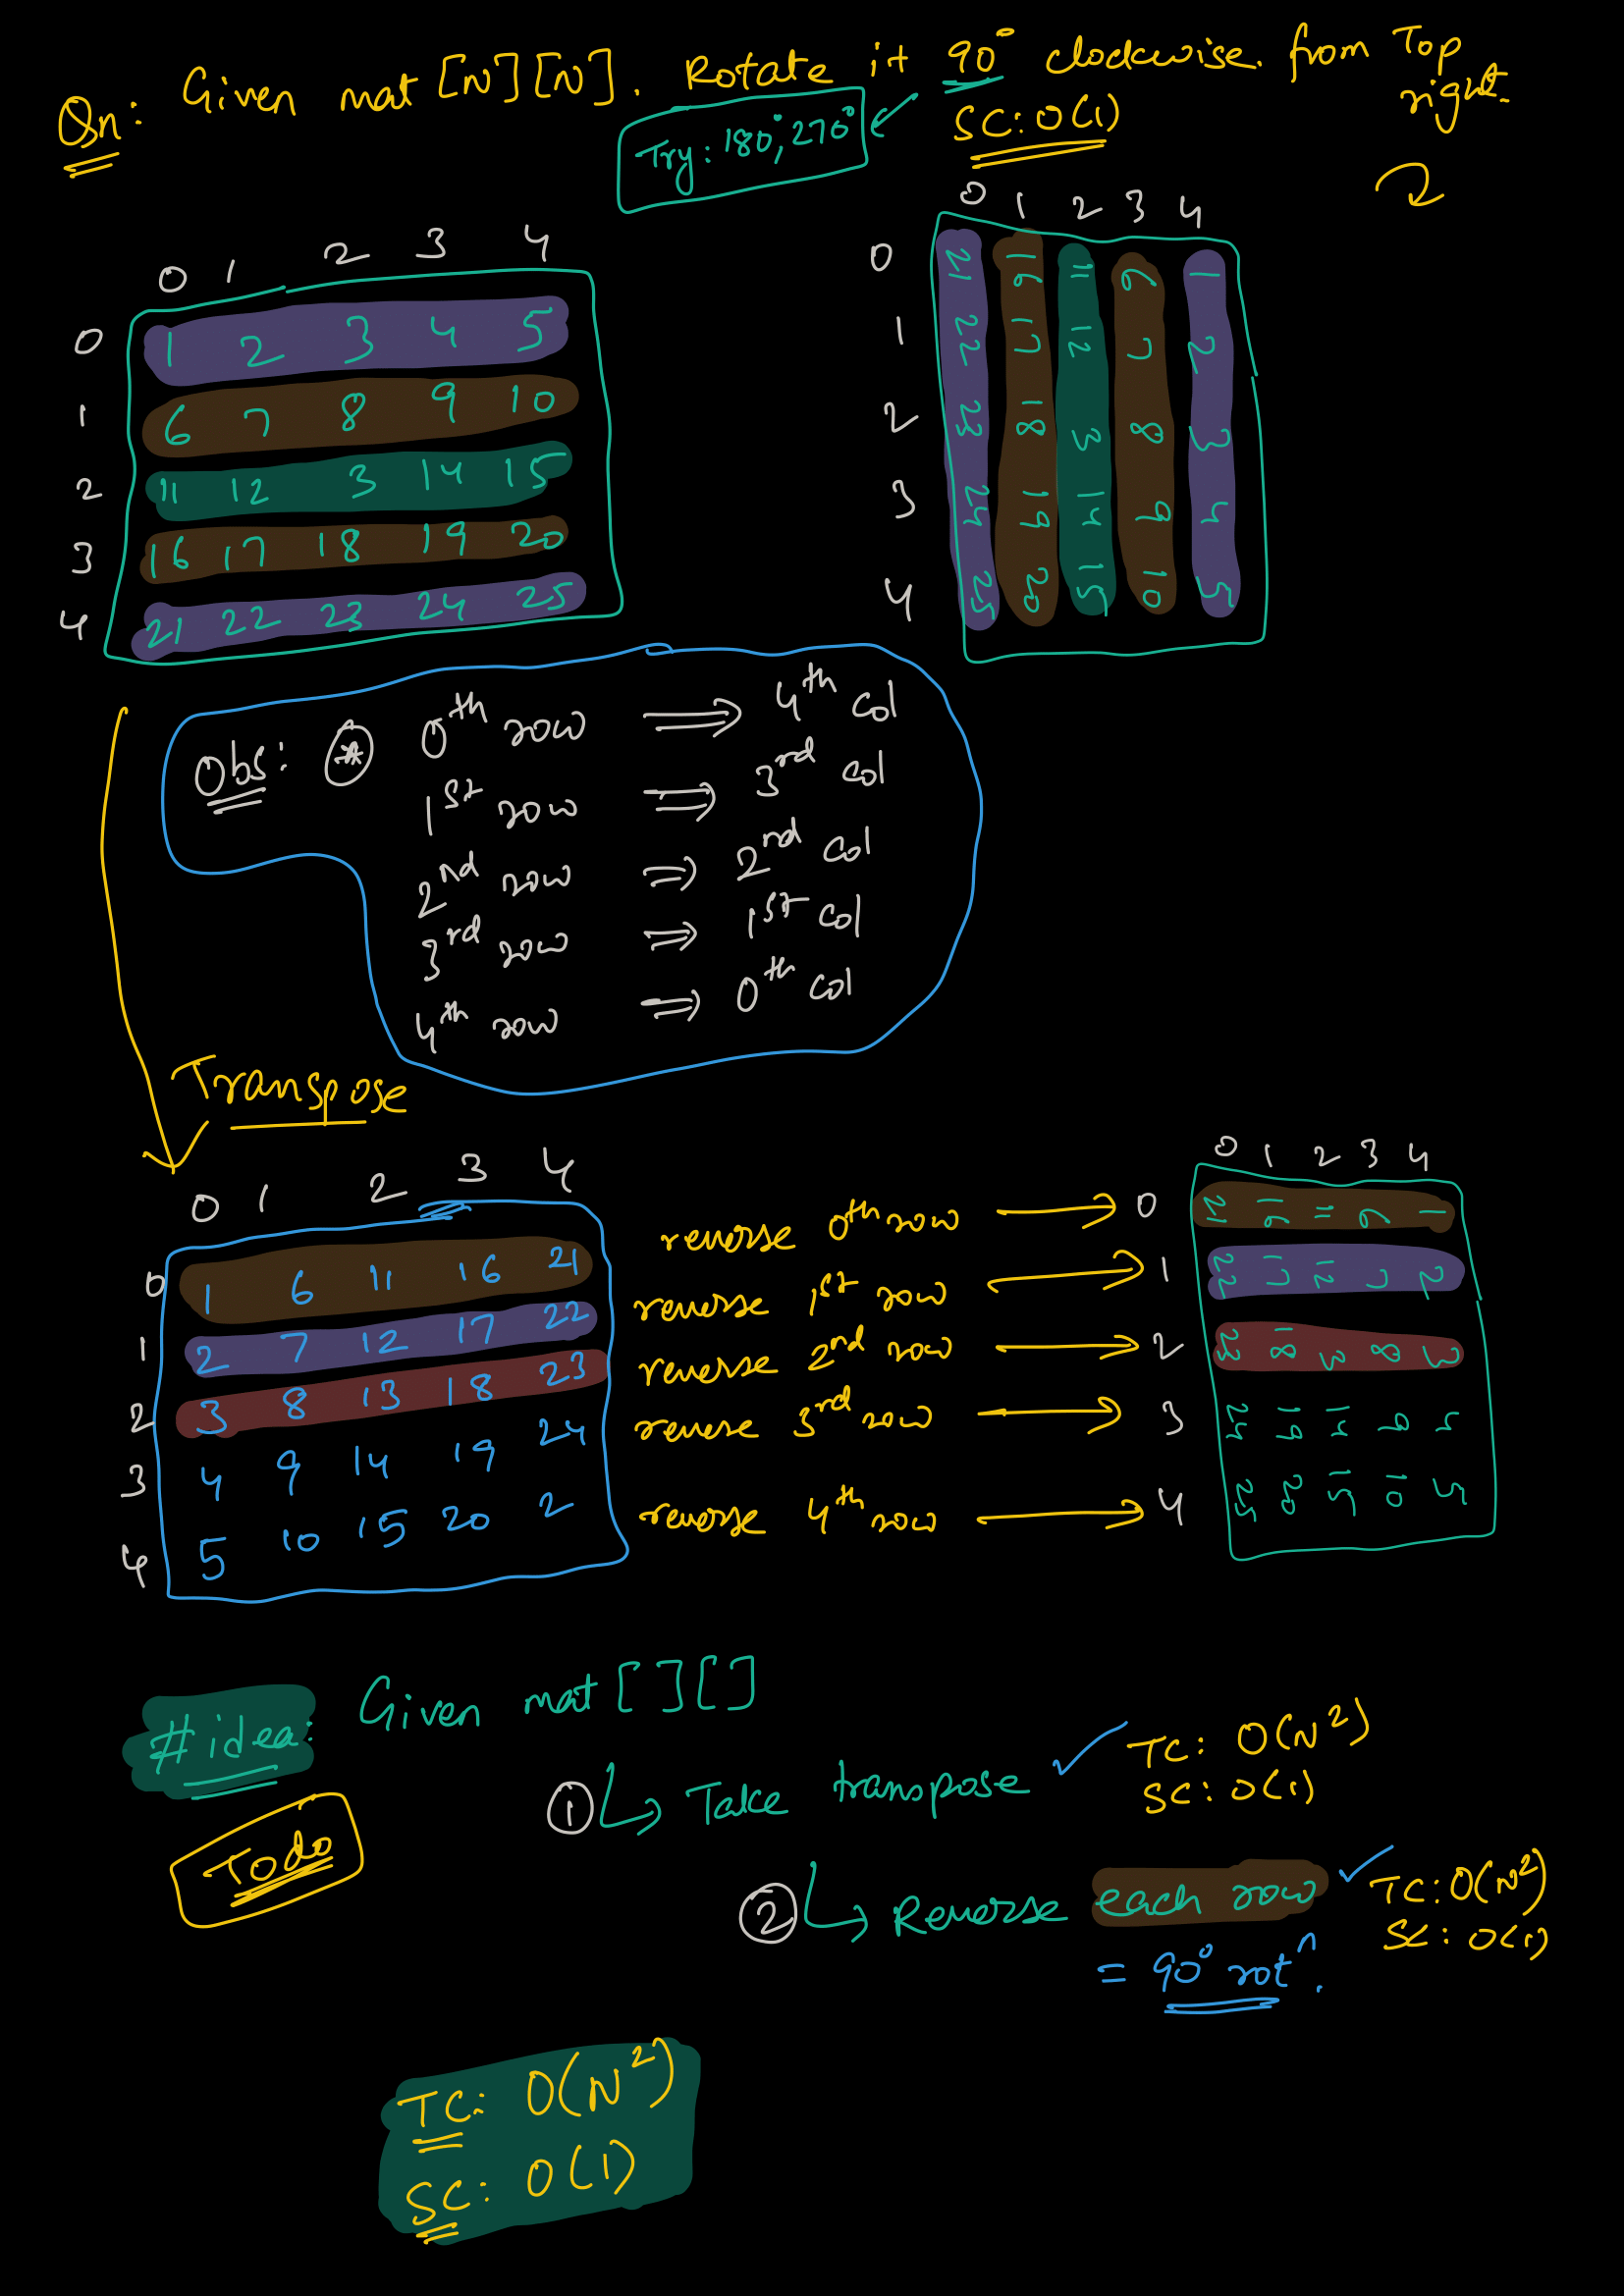 Qn: Given mat [N][N]. Rotate it 90° clockwise. from Top right.
Try: 180°, 270°
SC: O(1)
0 1 2 3 4
0 1 2 3 4 5
1 6 7 8 9 10
2 11 12 3 14 15
3 16 17 18 19 20
4 21 22 23 24 25
0 1 2 3 4
0 21 16 11 6 1
1 22 17 12 7 2
2 23 18 3 8 3
3 24 19 14 9 4
4 25 20 15 10 5
Obs: * 0th row ⟹ 4th col
1st row ⟹ 3rd col
2nd row ⟹ 2nd col
3rd row ⟹ 1st col
4th row ⟹ 0th col
Transpose
0 1 2 3 4
0 1 6 11 16 21
1 2 7 12 17 22
2 3 8 13 18 23
3 4 9 14 19 24
4 5 10 15 20 2
reverse 0th row →
reverse 1st row →
reverse 2nd row →
reverse 3rd row →
reverse 4th row →
0 1 2 3 4
0 21 16 11 6 1
1 22 17 12 7 2
2 23 18 3 8 3
3 24 19 14 9 4
4 25 20 15 10 5
#idea: Given mat [][]
Todo
① ↳ Take transpose ✓ TC: O(N²)
SC: O(1)
② ↳ Reverse each row ✓ TC: O(N²)
SC: O(1)
= 90° rotⁿ.
TC: O(N²)
SC: O(1)